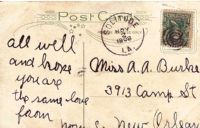 POST CARD
SOLITUDE
LA.
all well
and hope
you are
the same - love
from
Miss A. A. Burke
3913 Camp St
New Orleans